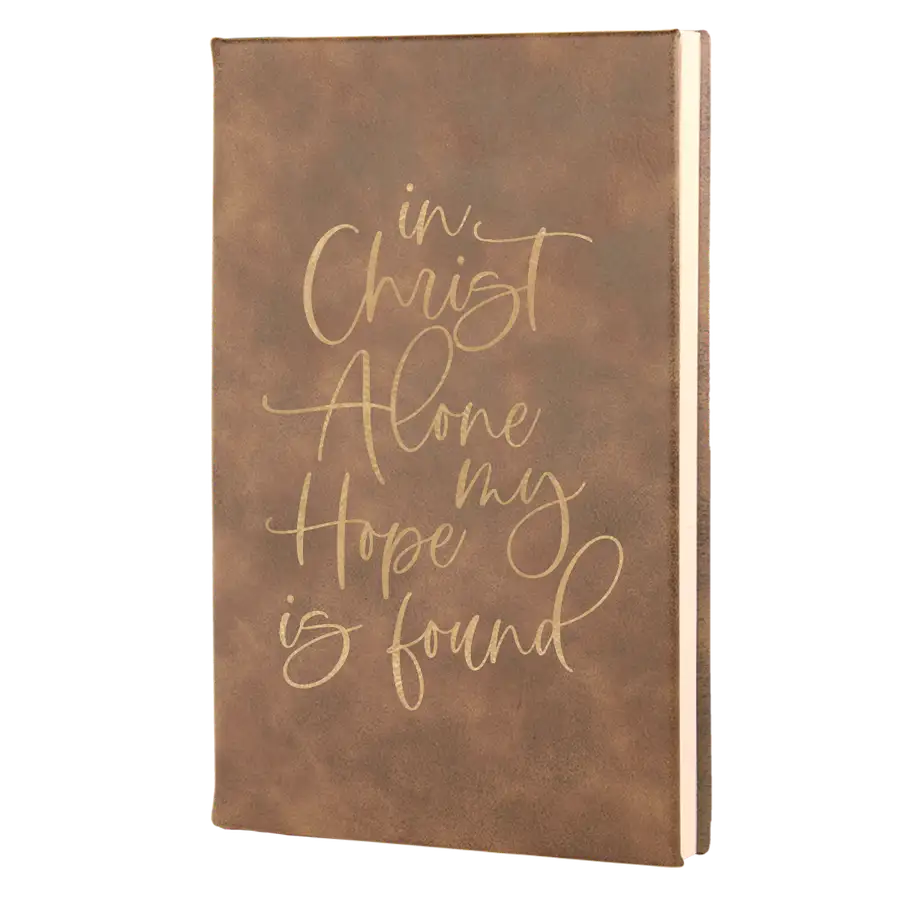 in
Christ
Alone
my
Hope
is found